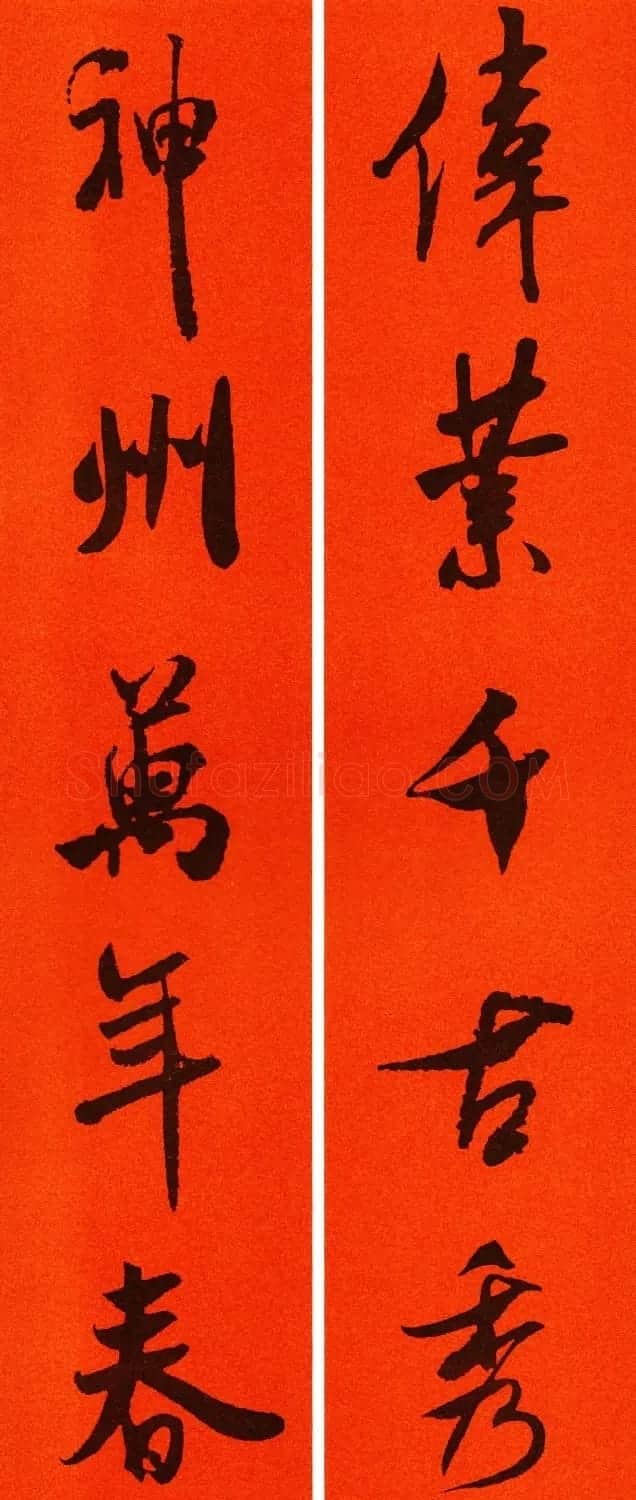 偉業千古秀
神州萬年春
Shufaziliao.COM